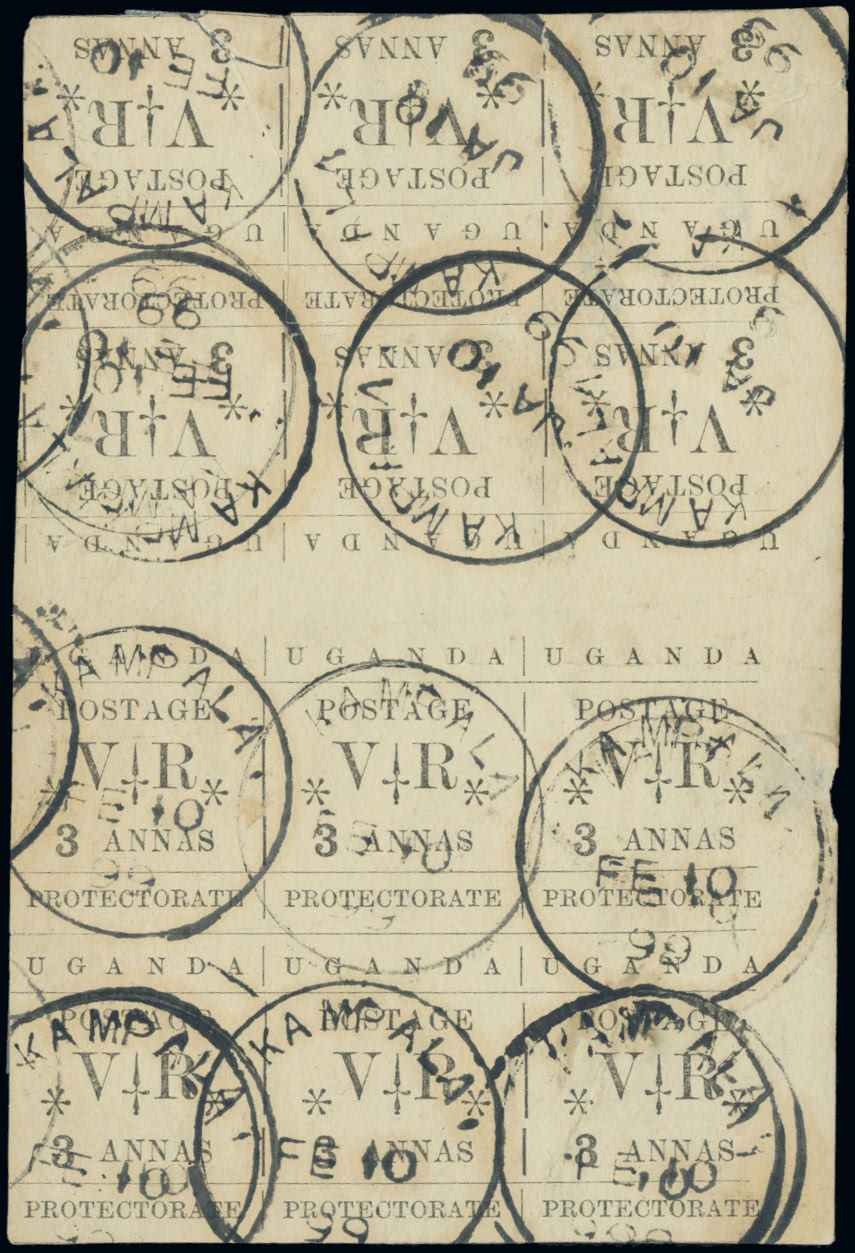 3 ANNAS 3 ANNAS 3 ANNAS
* V R * * V R * * V R *
POSTAGE POSTAGE POSTAGE
UGANDA UGANDA UGANDA
PROTECTORATE PROTECTORATE PROTECTORATE
3 ANNAS 3 ANNAS 3 ANNAS
* V R * * V R * * V R *
POSTAGE POSTAGE POSTAGE
UGANDA UGANDA UGANDA
UGANDA UGANDA UGANDA
POSTAGE POSTAGE POSTAGE
* V R * * V R * * V R *
3 ANNAS 3 ANNAS 3 ANNAS
PROTECTORATE PROTECTORATE PROTECTORATE
UGANDA UGANDA UGANDA
POSTAGE POSTAGE POSTAGE
* V R * * V R * * V R *
3 ANNAS 3 ANNAS 3 ANNAS
PROTECTORATE PROTECTORATE PROTECTORATE
KAMPALA
JA 10
99
KAMPALA
FE 10
99
KAMPALA
FE 10
KAMPALA
FE 10
99
KAMPALA
FE 10
KAMPALA
FE 10
99